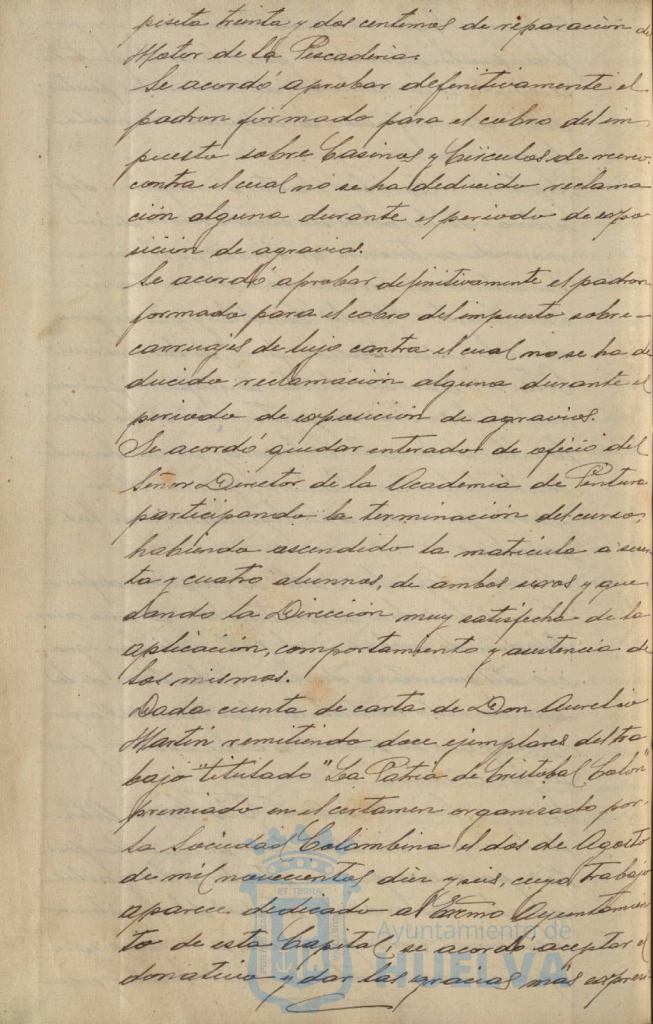 peseta treinta y dos centimos de reparación del
Motor de la Pescaderia.
Se acordó aprobar definitivamente el
padron formado para el cobro del im
puesto sobre Casinos y Circulos de recreo
contra el cual no se ha deducido reclama
ción alguna durante el periodo de expo
sición de agravios.
Se acordó aprobar definitivamente el padron
formado para el cobro del impuesto sobre
carruajes de lujo contra el cual no se ha de
ducido reclamación alguna durante el
periodo de exposición de agravios.
Se acordó quedar enterado de oficio del
Señor Director de la Academia de Pintura
participando la terminación del curso,
habiendo ascendido la matrícula a
ta y cuatro alumnos, de ambos sexos y que
dando la Dirección muy satisfecha de la
aplicación, comportamiento y asistencia de
los mismos.
Dada cuenta de carta de Don Aurelio
Martin remitiendo doce ejemplares del tra
bajo titulado "La Patria de Cristobal Colon"
premiado en el certamen organizado por
la Sociedad Colombina el dos de Agosto
de mil novecientos diez y seis, cuyo trabajo
aparece dedicado al Excmo Ayuntamien
to de esta Capital; se acordó aceptar el
donativo y dar las gracias más expresi
ET TERRA
Ayuntamiento de
HUELVA